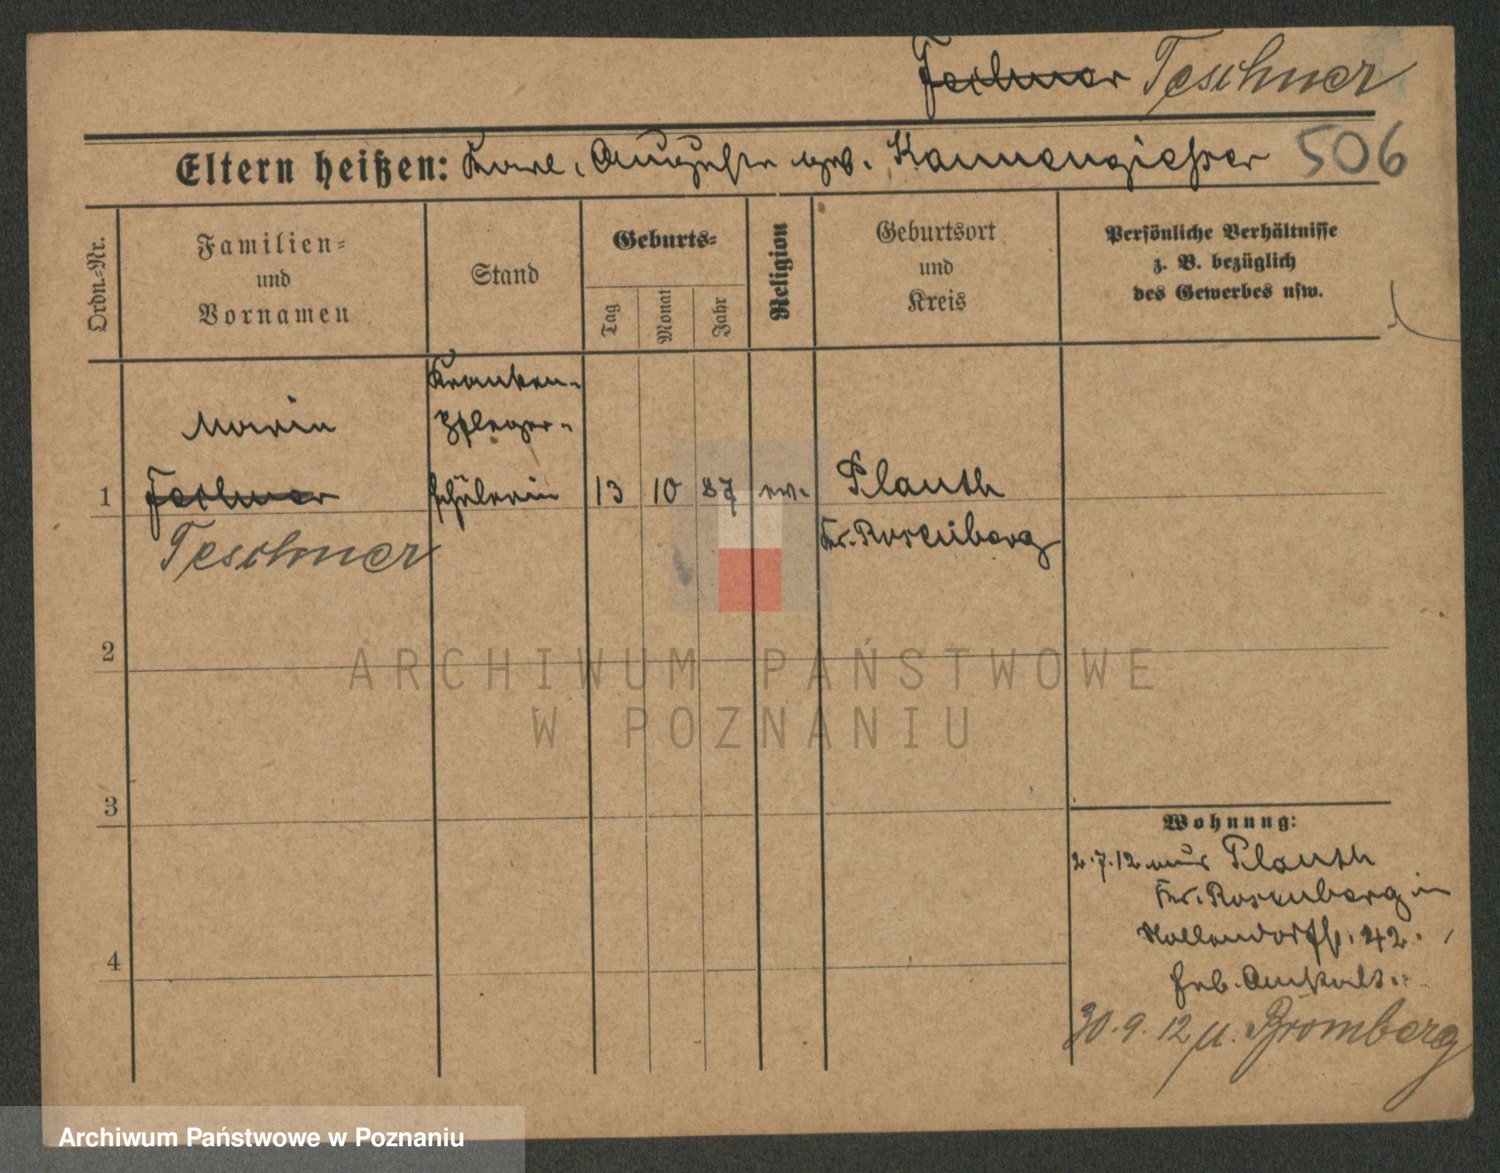 Teschner
506
Eltern heißen: Karl, Auguste geb. Kannengießer
Ordn.-Nr.
Familien-
und
Vornamen
Stand
Geburts-
Tag
Monat
Jahr
Religion
Geburtsort
und
Kreis
Persönliche Verhältnisse
z. B. bezüglich
des Gewerbes usw.
1
Marie
Teschner
Kranken-
pfleger-
schülerin
13
10
87
ev.
Plauth
Kr. Rosenberg
2
3
4
Wohnung:
2.7.12 aus Plauth
Kr. Rosenberg in
Hollendorfstr. 42.
30.9.12 n. Bromberg
ARCHIWUM PAŃSTWOWE
W POZNANIU
Archiwum Państwowe w Poznaniu